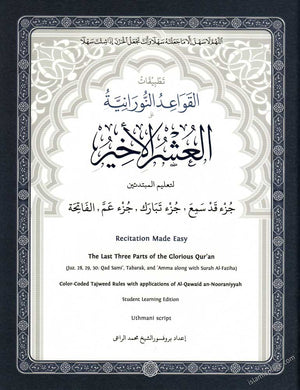 اللهم لا سهل إلا ما جعلته سهلا وأنت تجعل الحزن إذا شئت سهلا
تطبيقات
القواعد النورانية
على
العشر الأخير
لتعليم المبتدئين
جزء قد سمع ، جزء تبارك ، جزء عم ، الفاتحة
Recitation Made Easy
The Last Three Parts of the Glorious Qur'an
(Juz. 28, 29, 30: Qad Sami', Tabarak, and 'Amma along with Surah Al-Fatiha)
Color-Coded Tajweed Rules with applications of Al-Qawaid an-Nooraniyyah
Student Learning Edition
Uthmani script
إعداد بروفسور الشيخ محمد الراعي